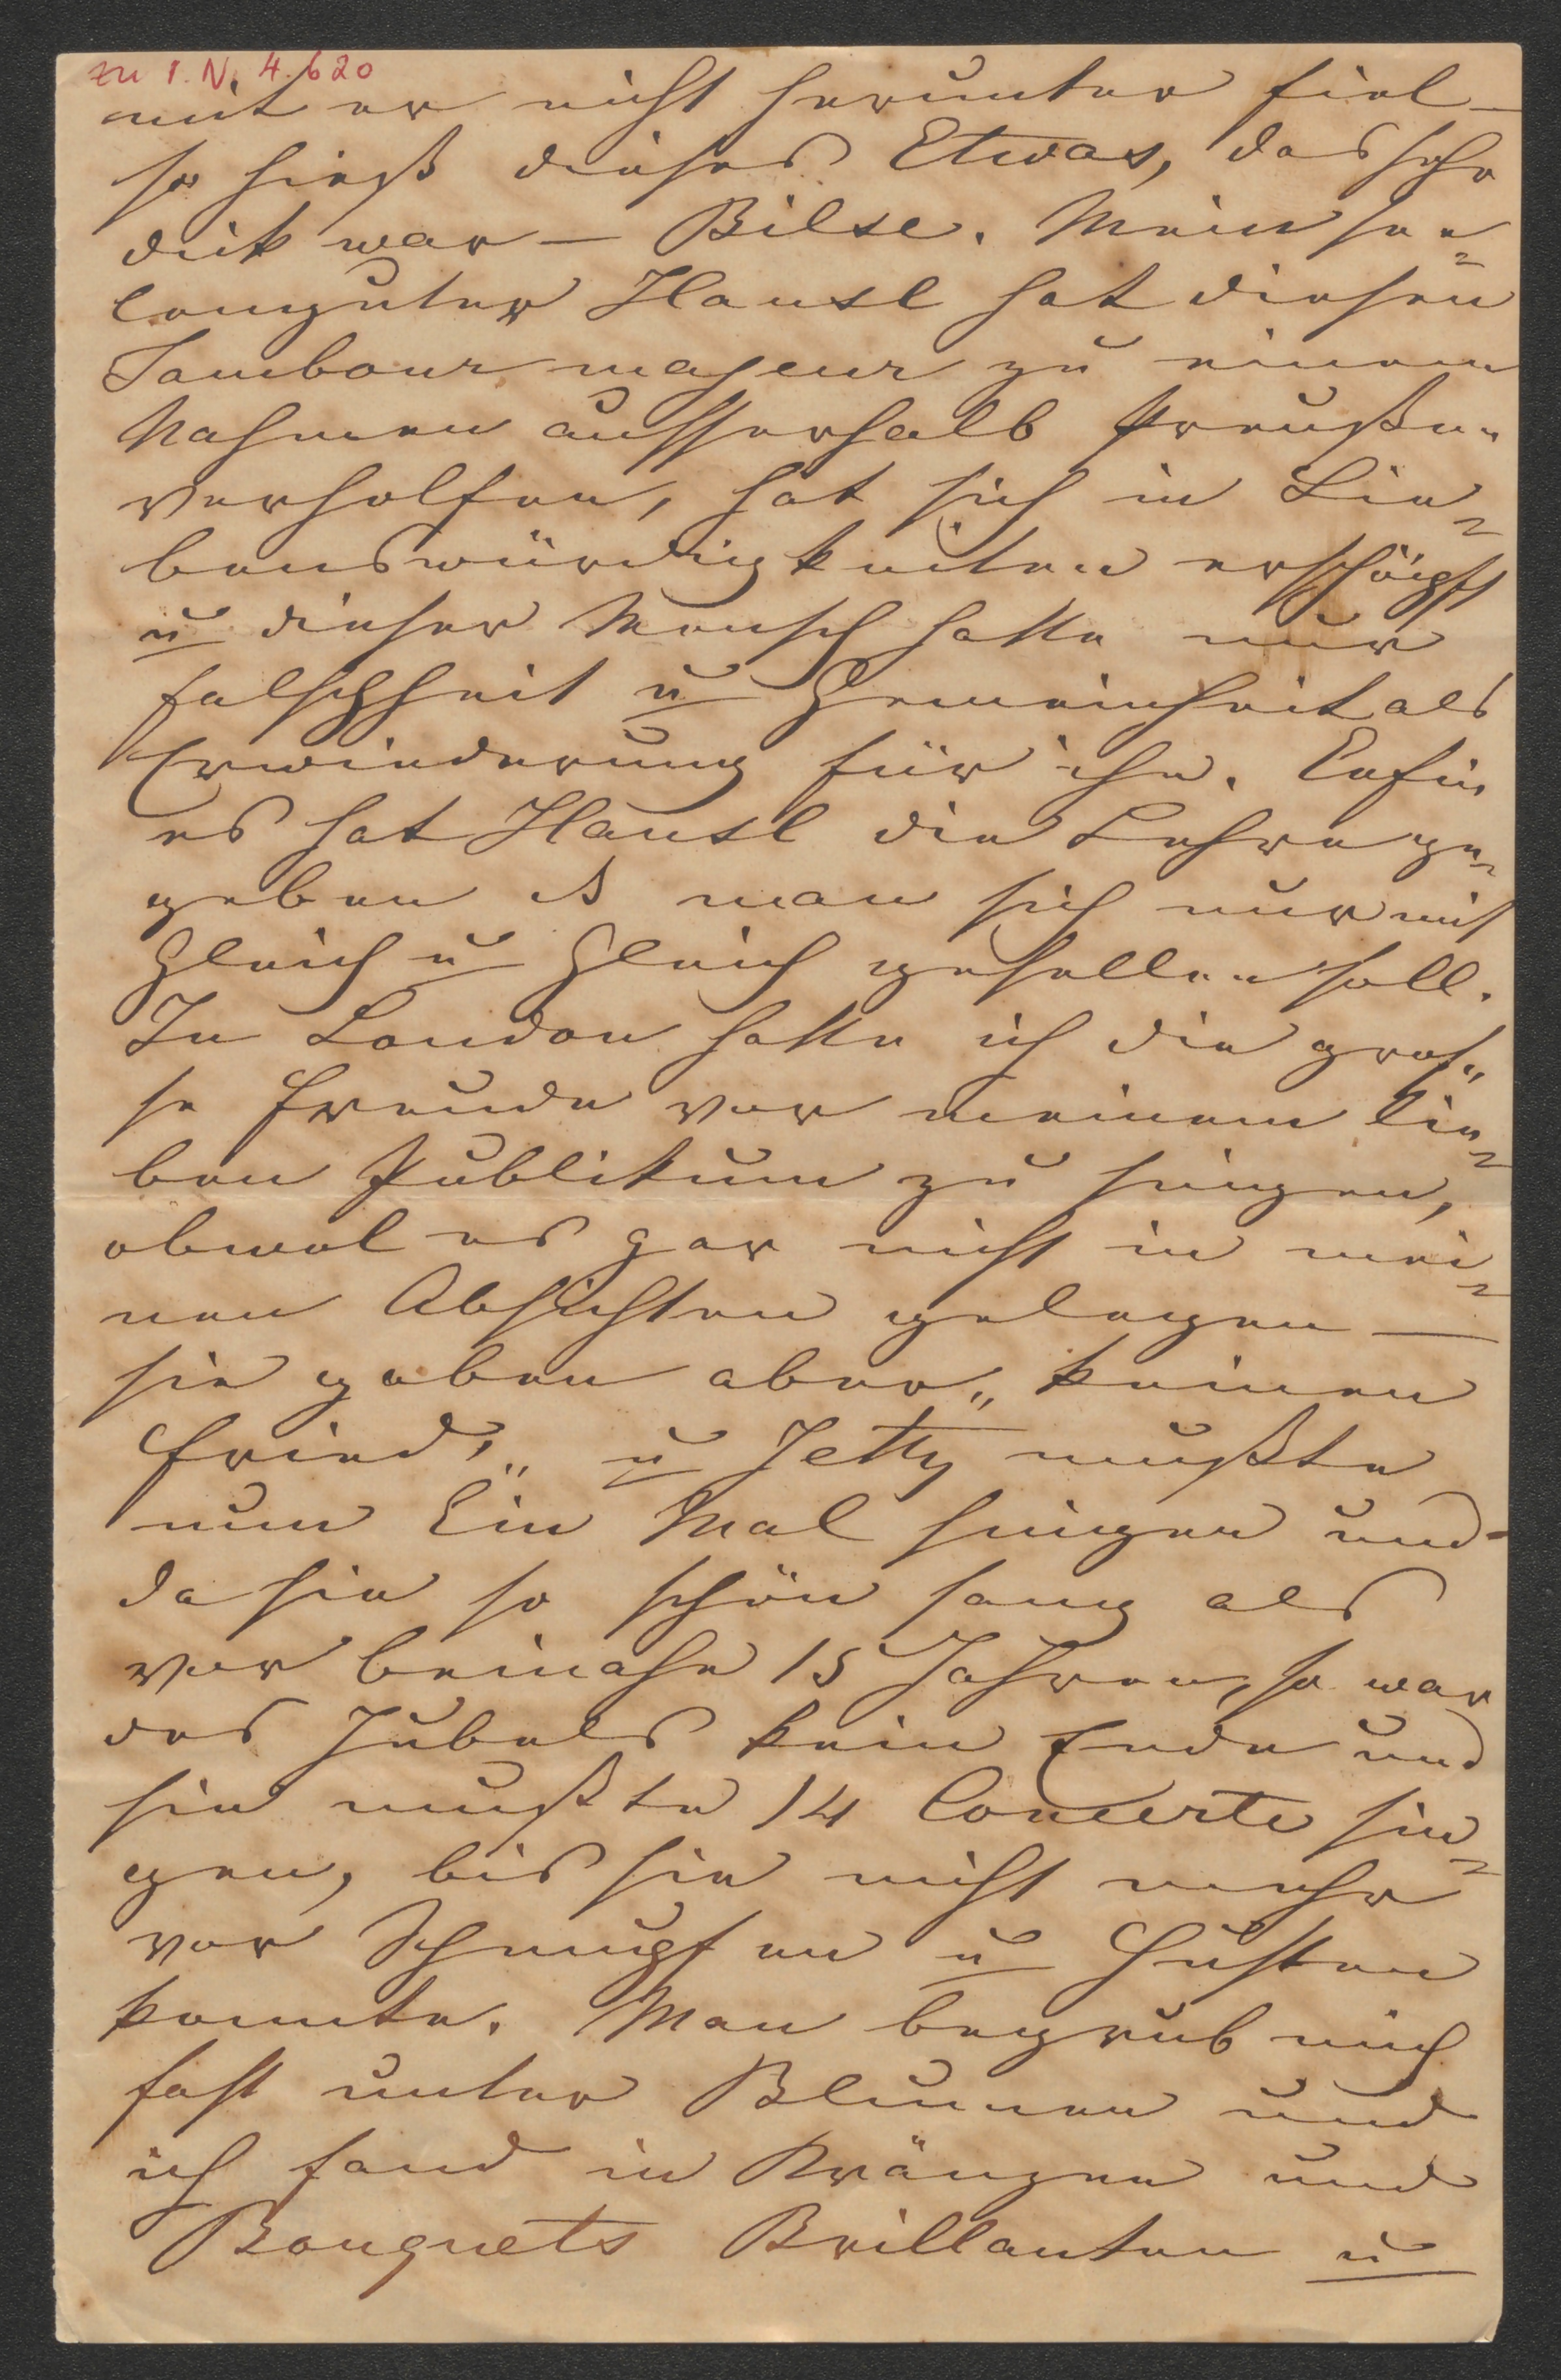 zu I. N. 4.620
mit er nicht herunter fiel –
so hieß dieses Etwas, das sehr
dick war – Bilse. Mein see=
lenguter Hansl hat diesen
Tambour majeur zu einem
Nahmen ausserhalb Preußen
verholfen, hat sich in Lie=
benswürdigkeiten erschöpft
u dieser Mensch hatte nur
Falschheit u Gemeinheit als
Erwiederung für ihn. Enfin
es hat Hansl die Lehre ge=
geben man sich nur mit
Gleich u Gleich gesellen soll.
In London hatte ich die gros=
se Freude vor meinem lie=
ben Publikum zu singen,
obwol es gar nicht in mei=
nen Absichten gelegen –
sie gaben aber „keinen
Fried," u Jetty mußte
nun Ein Mal singen und
da sie so schön sang als
vor beinahe 15 Jahren, so war
des Jubels kein Ende und
sie mußte 14 Concerte sin=
gen, bis sie nicht mehr
vor Schnupfen u Husten
konnte. Man begrub mich
fast unter Blumen und
ich fand in Kränzen und
Bouquets Brillanten u